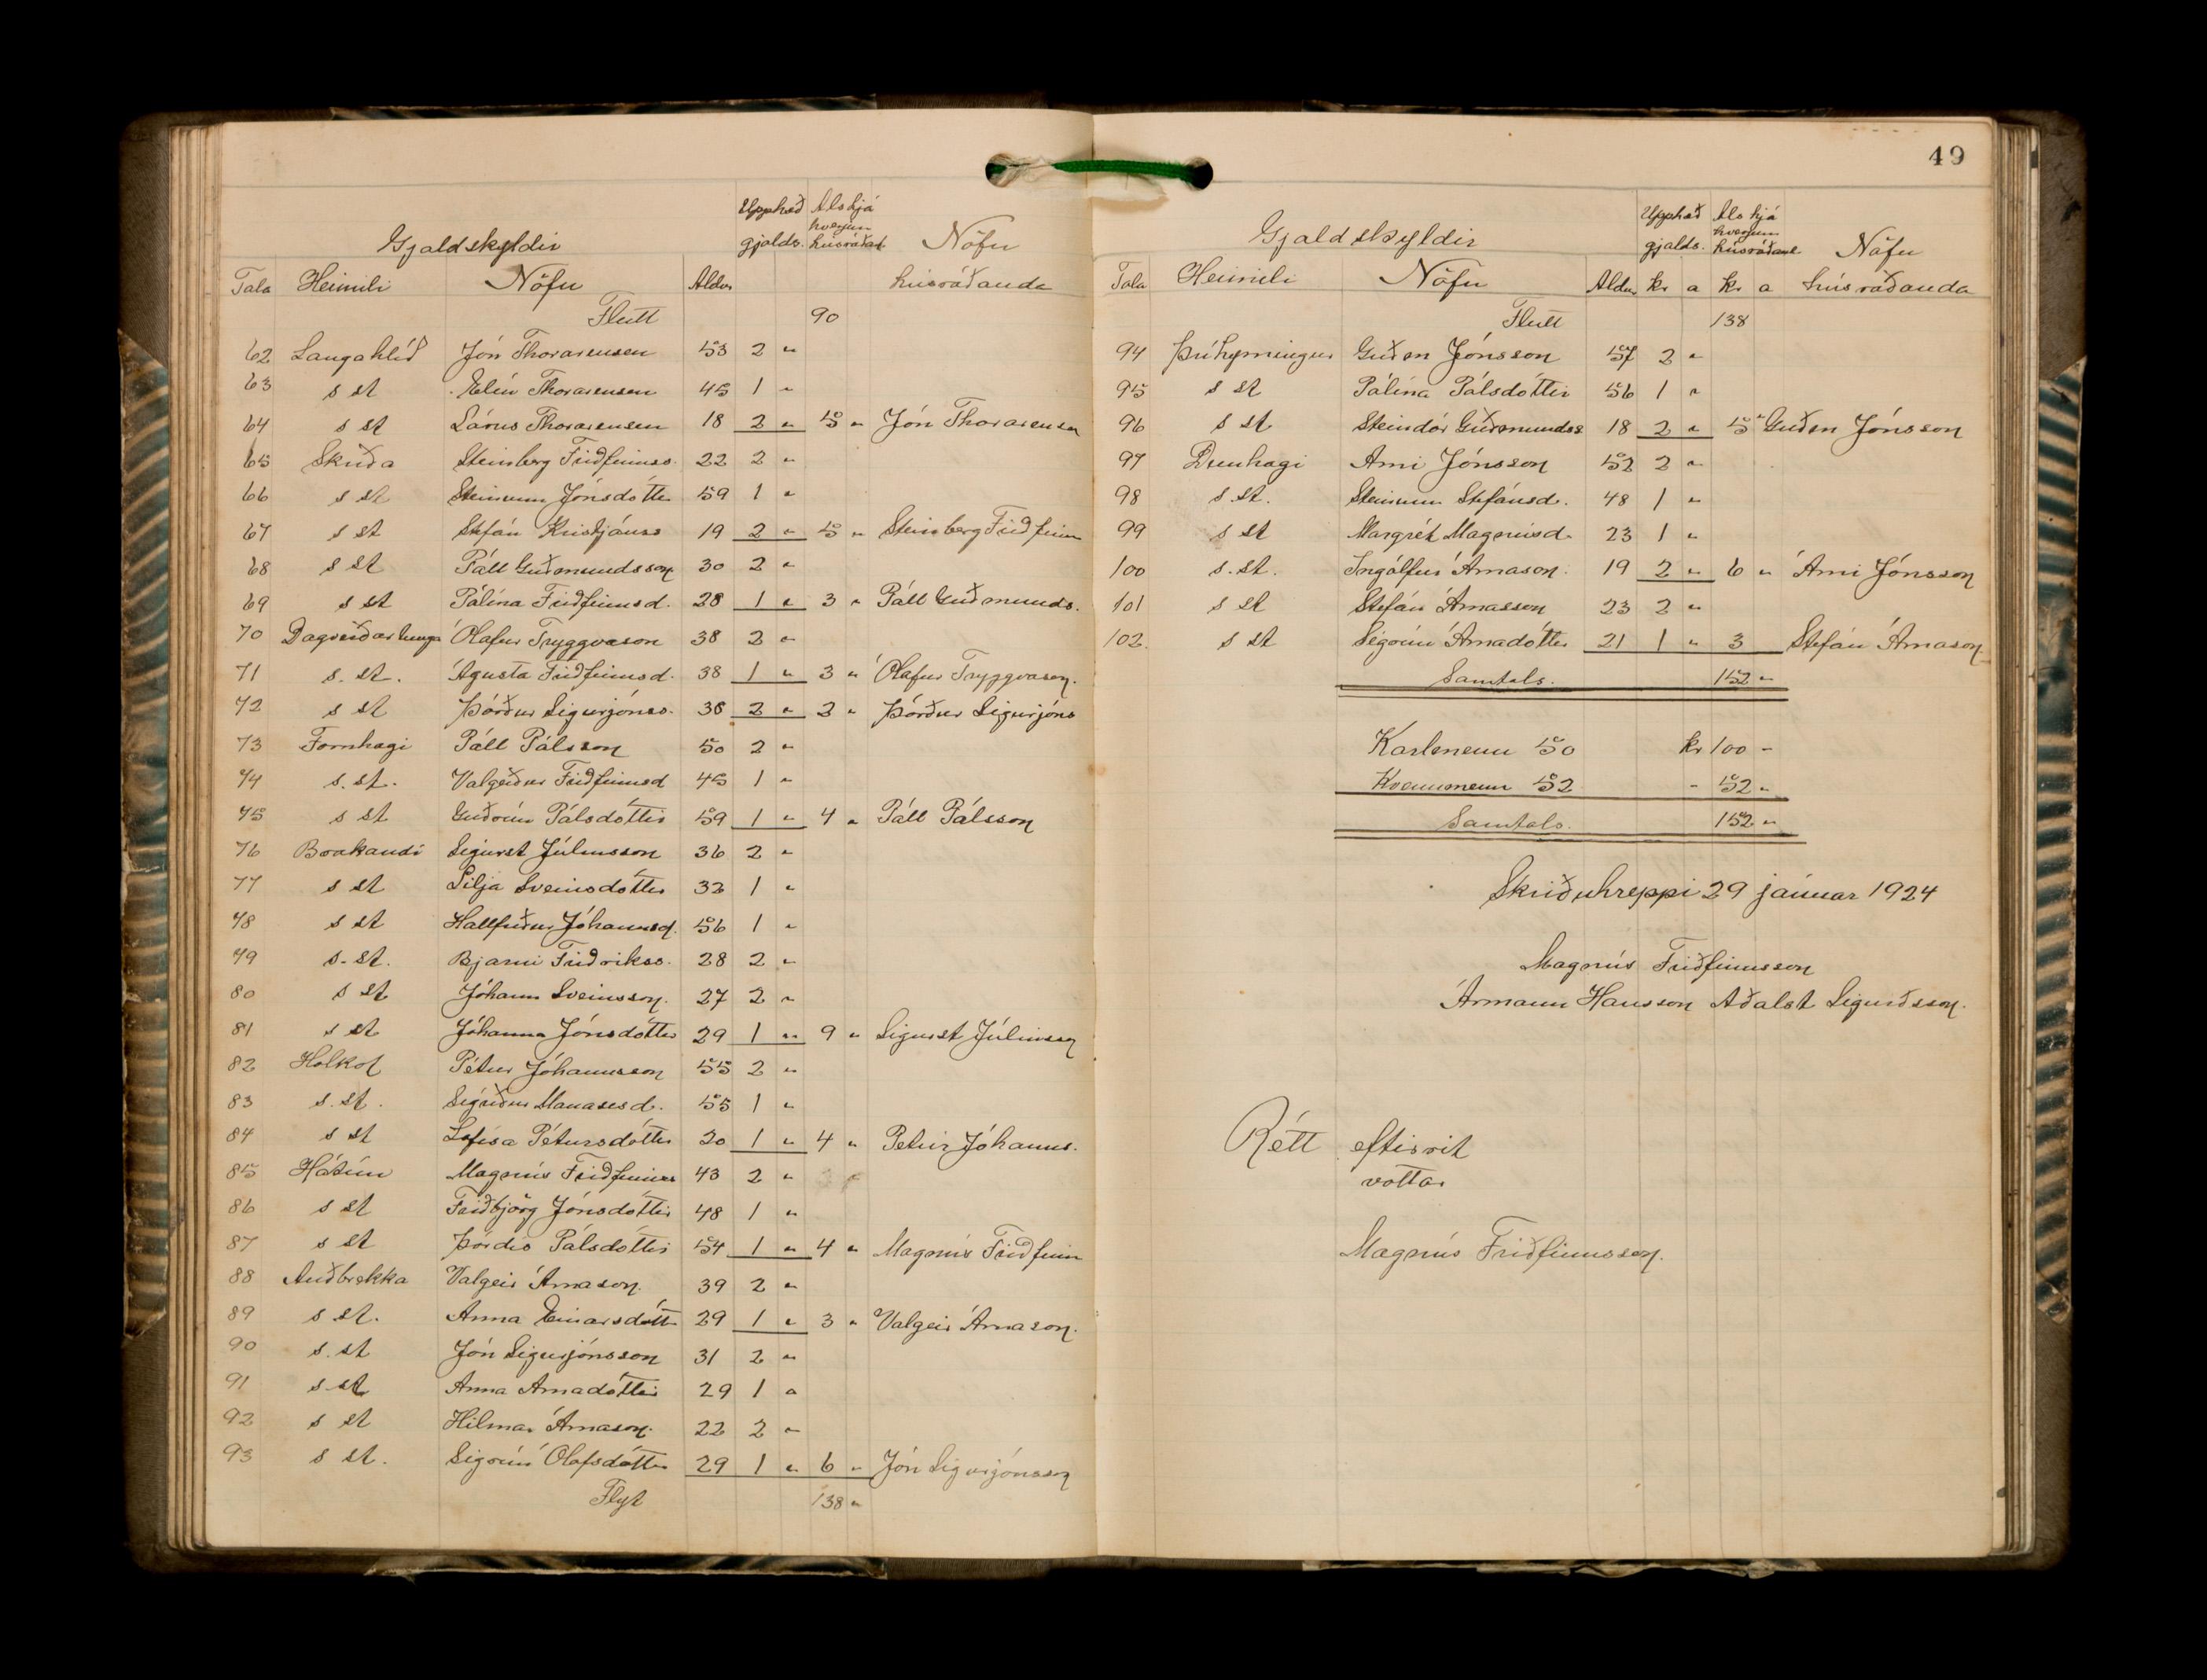 Gjaldskyldir Upphæð gjalds. Als hjá hverjum húsráðand Nöfn
Tala Heimili Nöfn Aldur húsráðanda
Flutt 90
62 Langahlíð Jón Thorarensen 53 2 "
63 s st Elín Thorarensen 45 1 "
64 s st Lárus Thorarensen 18 2 " 5 " Jón Thorarensen
65 Skriða Steinberg Friðfinnss. 22 2 "
66 s st Steinunn Jónsdóttir 59 1 "
67 s st Stefán Kristjánss 19 2 " 5 " Steinberg Friðfinn
68 s st Páll Guðmundsson 30 2 "
69 s st Pálína Friðfinnsd. 28 1 " 3 " Páll Guðmunds.
70 Dagverðartunga Ólafur Tryggvason 38 2 "
71 s. st. Ágústa Friðfinnsd. 38 1 " 3 " Ólafur Tryggvason.
72 s st Þórður Sigurjónss. 38 2 " 2 " Þórður Sigurjóns
73 Fornhagi Páll Pálsson 50 2 "
74 s. st. Valgerður Friðfinnsd 45 1 "
75 s st Guðrún Pálsdóttir 59 1 " 4 " Páll Pálsson
76 Brakandi Sigurst Júlíusson 36 2 "
77 s st Lilja Sveinsdóttir 32 1 "
78 s st Hallfríður Jóhannsd. 56 1 "
79 s. st. Bjarni Friðrikss. 28 2 "
80 s st Jóhann Sveinsson. 27 2 "
81 s st Jóhanna Jónsdóttir 29 1 " 9 " Sigurst Júlíusson
82 Holkot Pétur Jóhannsson 55 2 "
83 s. st. Sigríður Manasesd. 55 1 "
84 s st Lofísa Pétursdóttir 20 1 " 4 " Petur Jóhanns.
85 Hátún Magnús Friðfinnss 43 2 "
86 s st Friðbjörg Jónsdóttir 48 1 "
87 s st Þórdís Pálsdóttir 54 1 " 4 " Magnús Friðfinn
88 Auðbrekka Valgeir Árnason. 39 2 "
89 s st. Anna Einarsdótt 29 1 " 3 " Valgeir Árnason.
90 s. st Jón Sigurjónsson 31 2 "
91 s st Anna Arnadóttir 29 1 "
92 s st Hilmar Árnason. 22 2 "
93 s st. Sigrún Ólafsdóttir 29 1 " 6 " Jón Sigurjónsson
Flyt 138 "
49
Gjaldskyldir Upphæð gjalds. Als hjá hverjum húsráðand Nöfn
Tala Heimili Nöfn Aldur kr a kr a húsráðanda
Flutt 138
94 Þríhyrningur Guðm Jónsson 57 2 "
95 s st Pálína Pálsdóttir 56 1 "
96 s st Steindór Guðmundss 18 2 " 5 " Guðm Jónsson
97 Dunhagi Arni Jónsson 52 2 "
98 s. st. Steinunn Stefánsd. 48 1 "
99 s st Margrét Magnúsd. 23 1 "
100 s. st. Ingólfur Árnason. 19 2 " 6 " Árni Jónsson
101 s st Stefán Árnasson 23 2 "
102. s st Sigrún Árnadóttir 21 1 " 3 Stefán Árnason
Samtals. 152 "
Karlmenn 50 kr 100 -
Kvennmenn 52 - 52 "
Samtals. 152 "
Skriðuhreppi 29 janúar 1924
Magnús Friðfinnsson
Ármann Hansson Aðalst Sigurðsson.
Rétt eftirrit
vottar
Magnús Friðfinnsson.